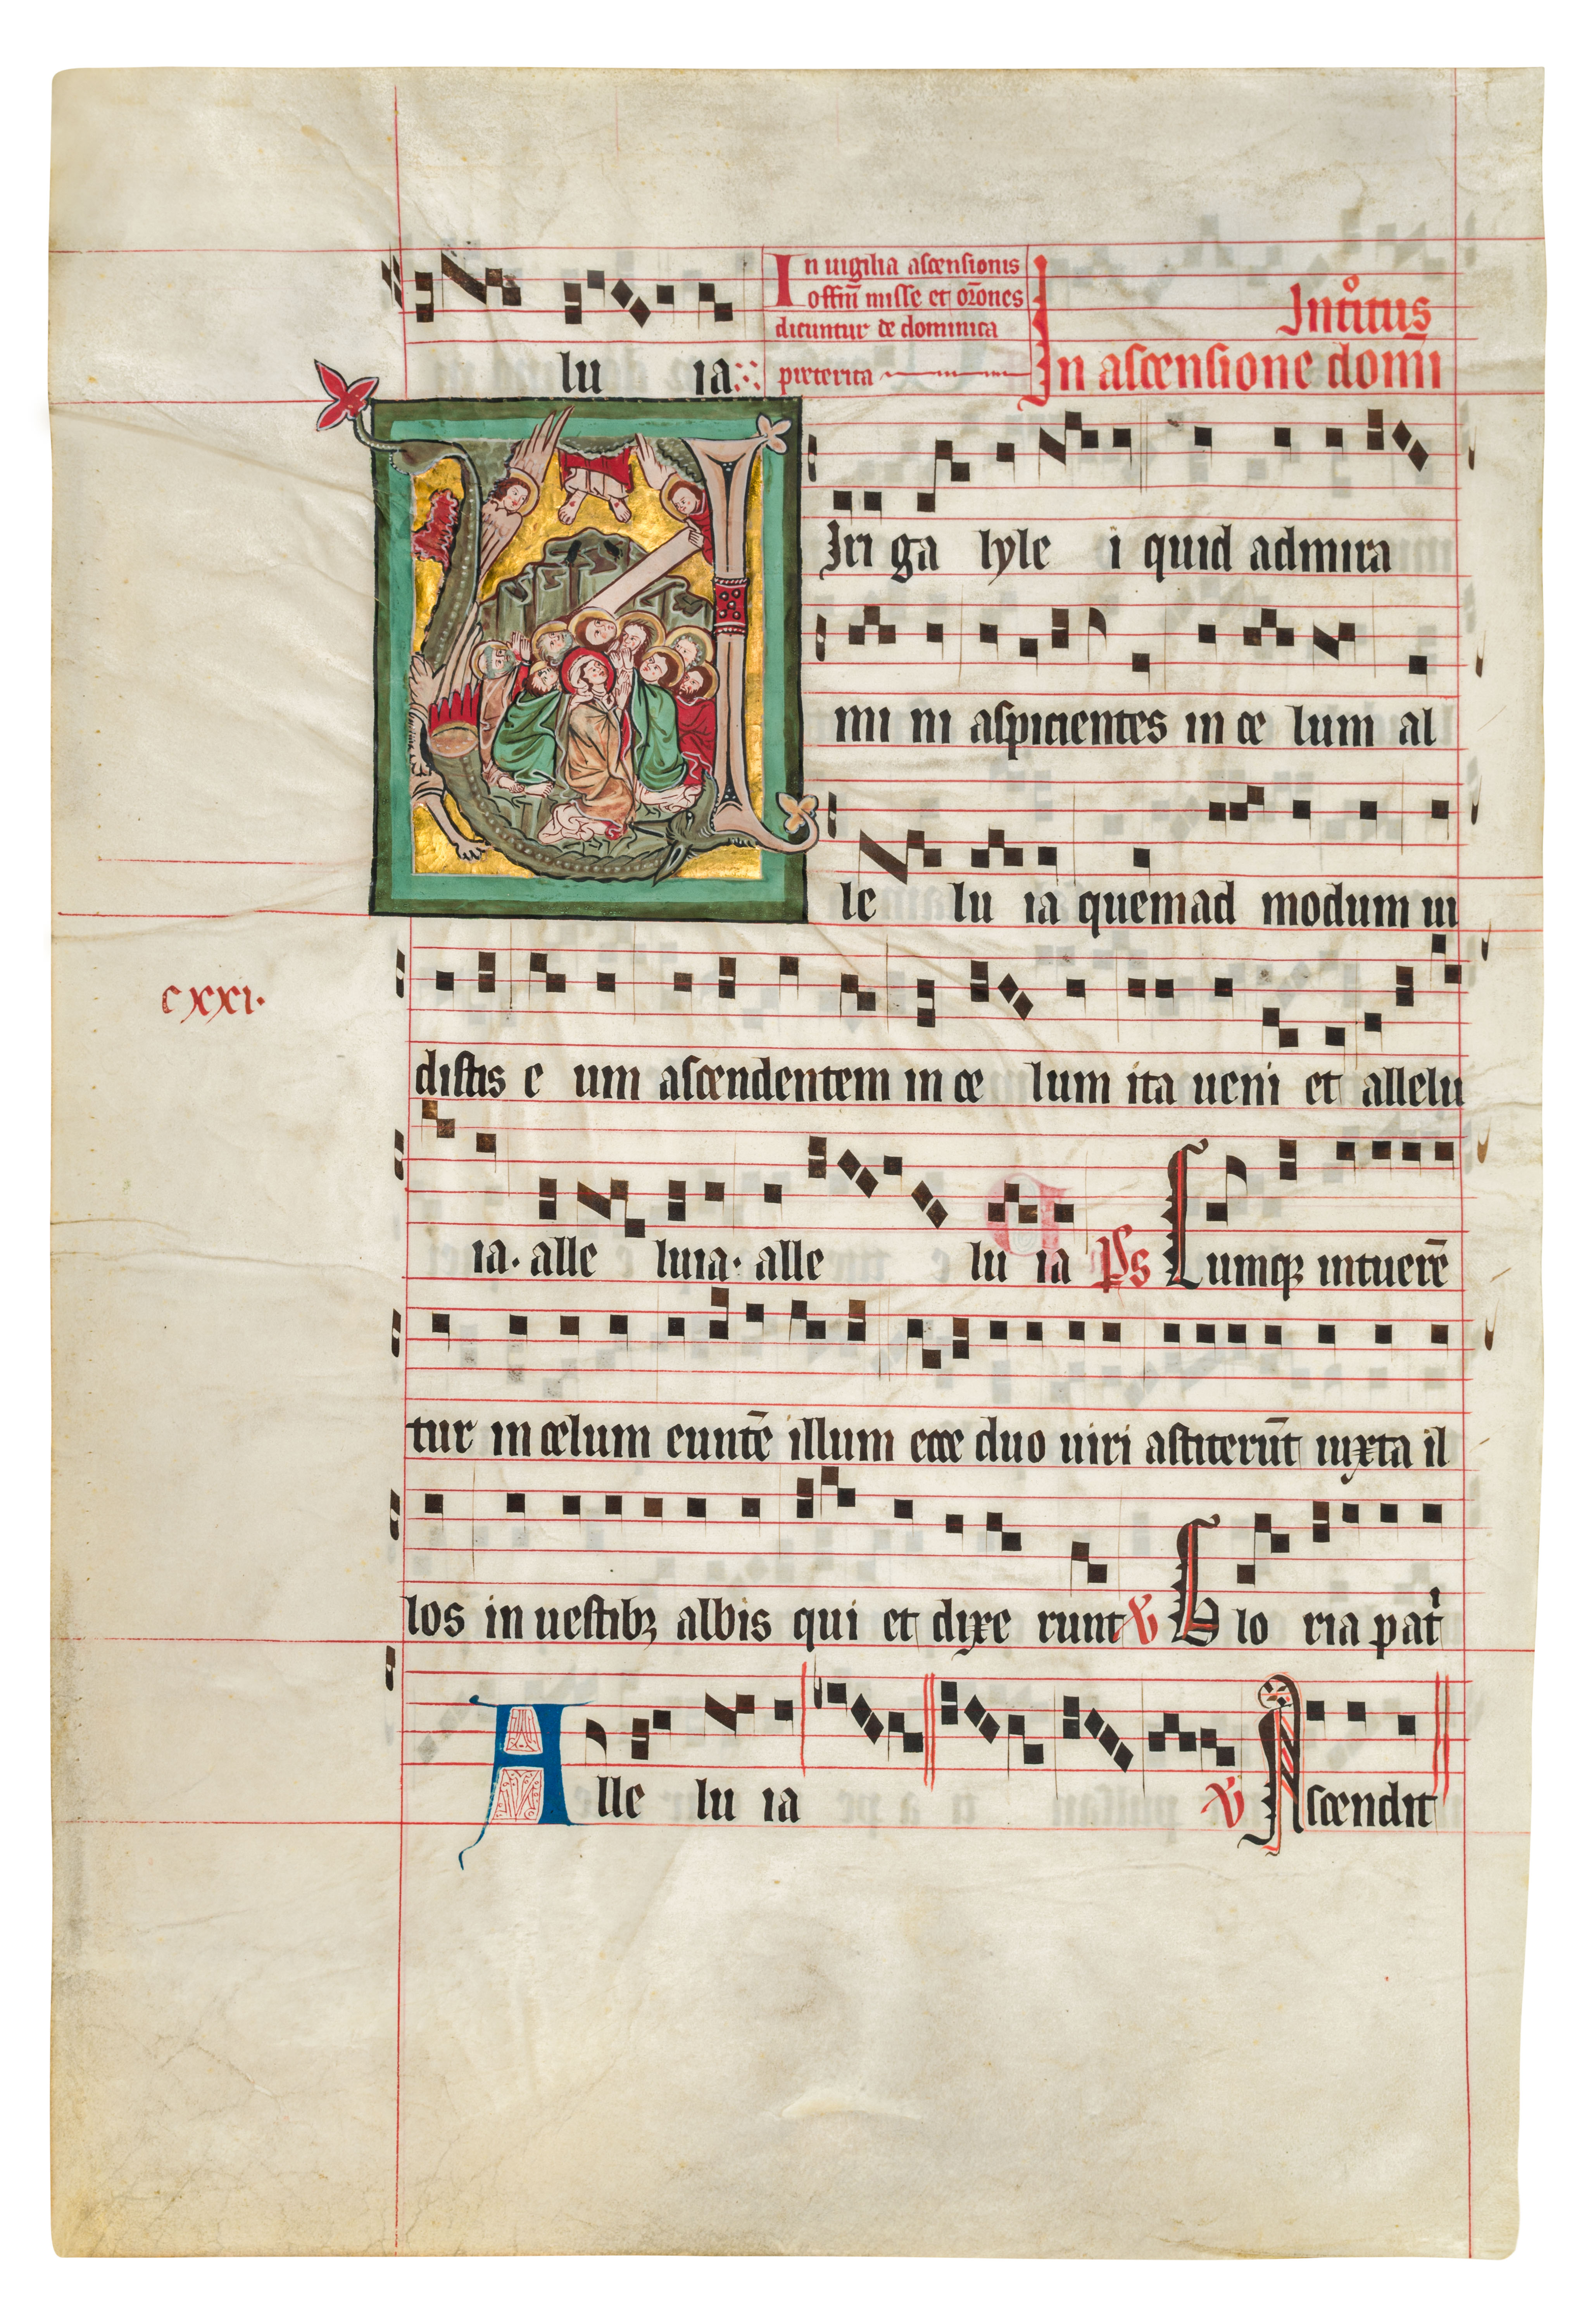 lu ia
In uigilia ascensionis
offm̄ misse et or̄ones
dicuntur de dominica
preterita
Introitus
In ascensione domī
Viri ga lyle i quid admira
mi ni aspicientes in ce lum al
le lu ia quemad modum ui
distis e um ascendentem in ce lum ita ueni et allelu
cxxi·
ia· alle luia· alle lu ia ps Cumq intuerē
tur in celum euntē illum ecce duo uiri astiterūt iuxta il
los in uestibꝫ albis qui et dixe runt ℣ Glo ria pat
Alle lu ia ℣ Ascendit